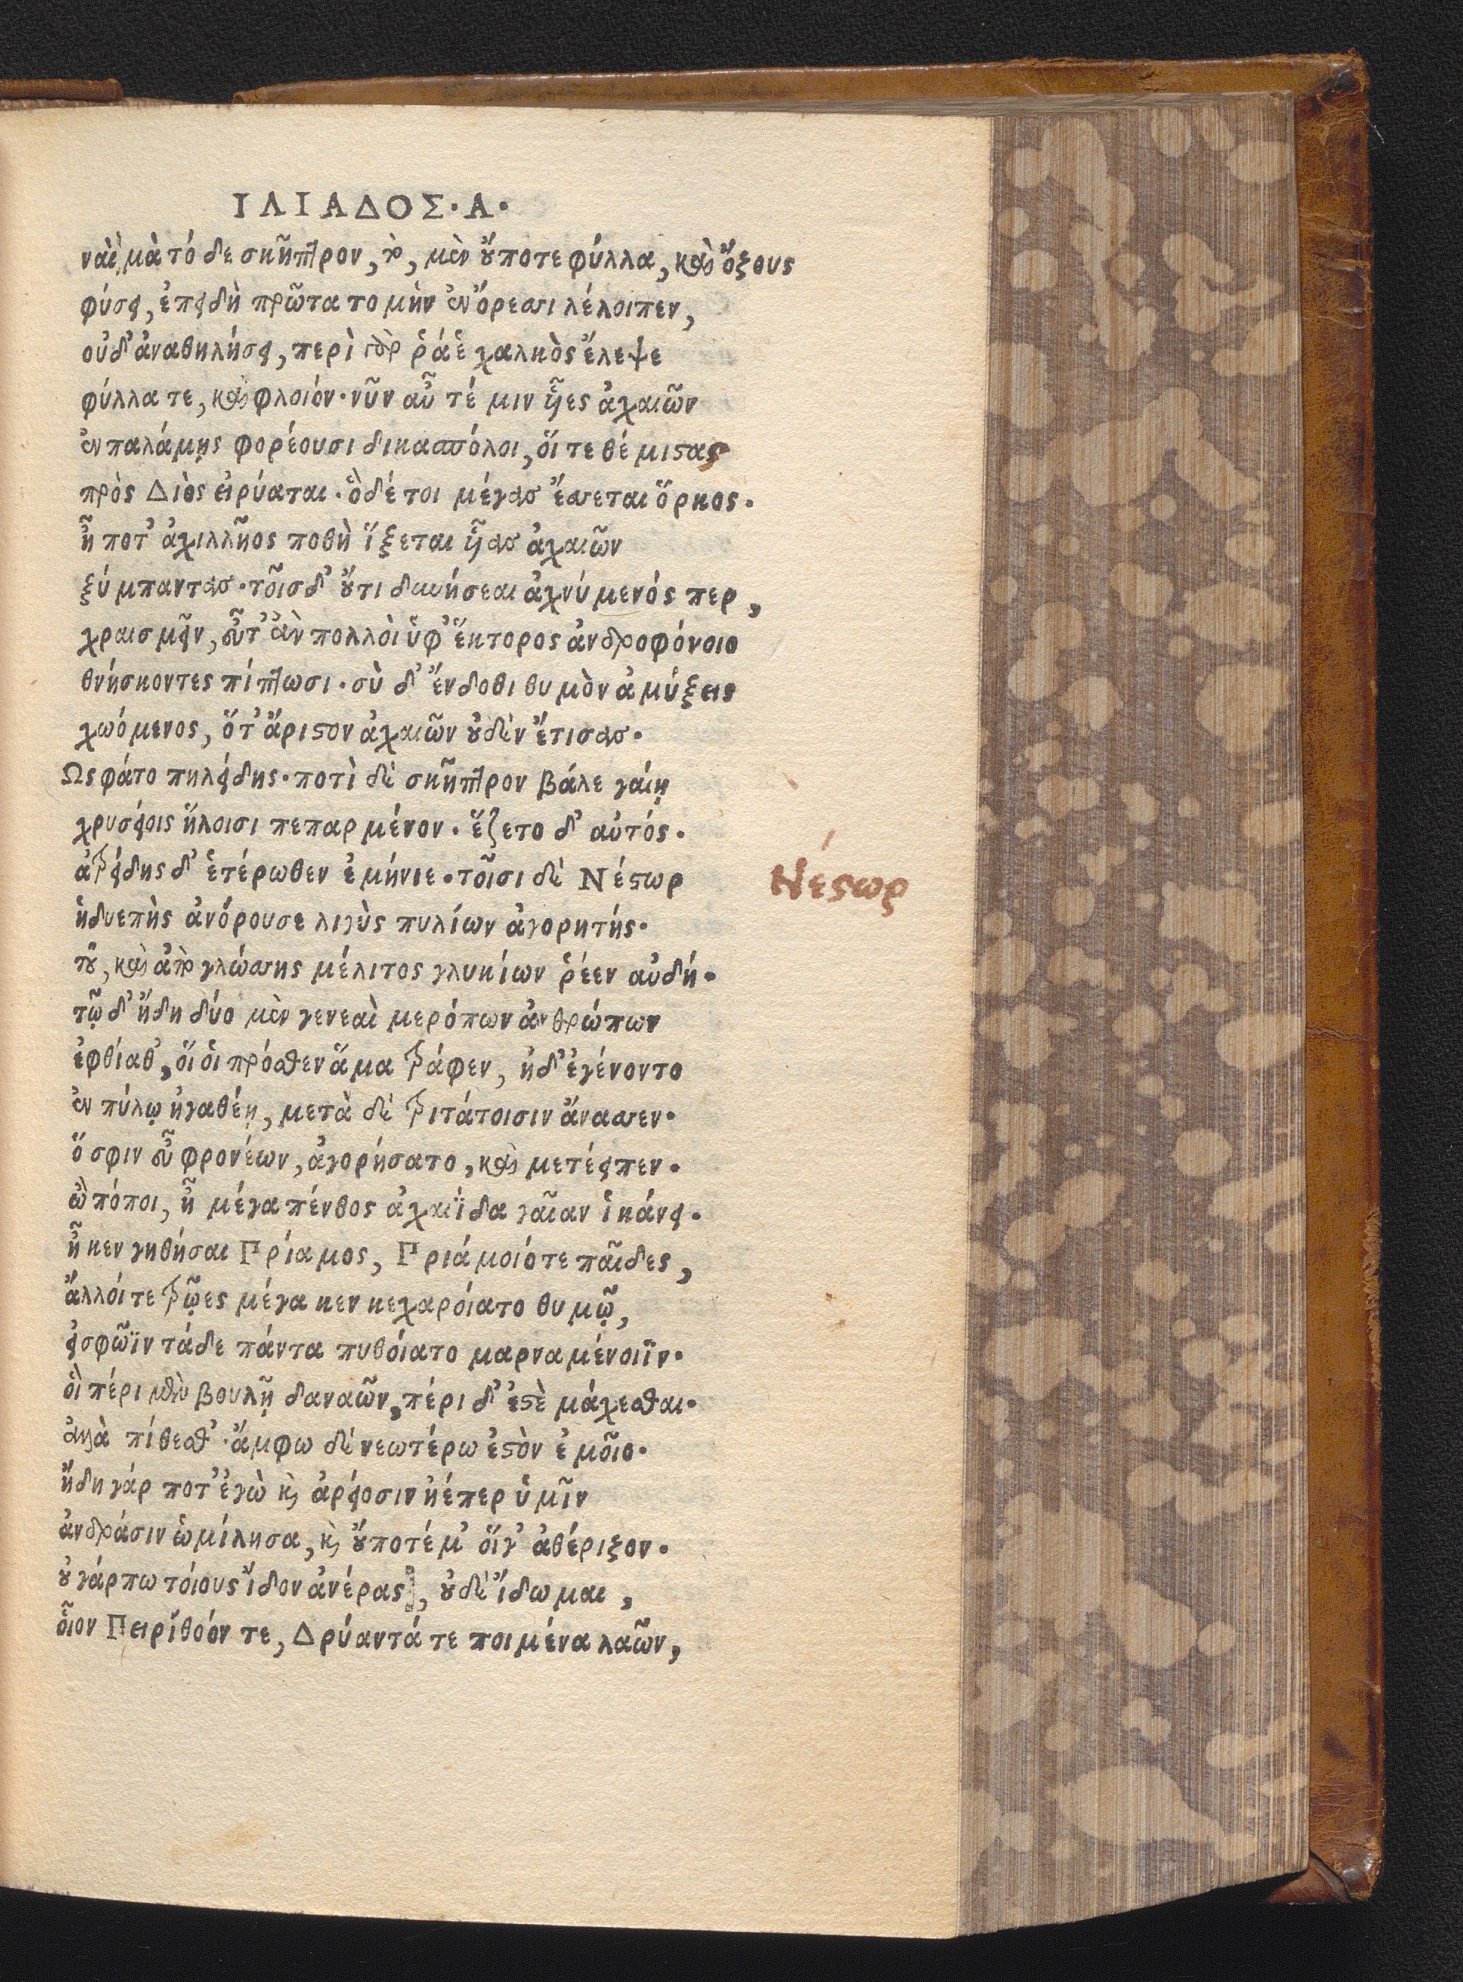 ΙΛΙΑΔΟΣ·Α·
ναὶ μὰ τό δε σκῆπτρον, τὸ, μὲν οὔποτε φύλλα, καὶ ὄζους
φύσει, ἐπειδὴ πρῶτα το μὴν ἐν ὄρεσσι λέλοιπεν,
οὐδ' ἀναθηλήσει, περὶ γὰρ ῥά ἑ χαλκὸς ἔλεψε
φύλλα τε, καὶ φλοιόν· νῦν αὖ τέ μιν ἷῆες ἀχαιῶν
ἐν παλάμῃς φορέουσι δικασπόλοι, οἵ τε θέ μιστας
πρὸς Διὸς εἰρύαται· ὃ δέ τοι μέγας ἔσσεται ὅρκος·
ἦ ποτ' ἀχιλλῆος ποθὴ ἵξεται ἷῆας ἀχαιῶν
ξύ μπαντας· τοῖσ δ' οὔτι δυνήσεαι ἀχνύ μενός περ,
χραισ μεῖν, εὖτ' ἂν πολλοὶ ὑφ' ἕκτορος ἀνδροφόνοιο
θνήσκοντες πίπτωσι· σὺ δ' ἔνδοθι θυ μὸν ἀ μύξεις
χωόμενος, ὅτ' ἄριστον ἀχαιῶν οὐδὲν ἔτισας·
Ως φάτο πηλείδης· ποτὶ δὲ σκῆπτρον βάλε γαίῃ
χρυσείοις ἥλοισι πεπαρ μένον· ἕζετο δ' αὐτός·
ἀτρείδης δ' ἑτέρωθεν ἐμήνιε· τοῖσι δὲ Νέστωρ
Νέστωρ
ἡδυεπὴς ἀνόρουσε λιγὺς πυλίων ἀγορητής·
τοῦ, καὶ ἀπὸ γλώσσης μέλιτος γλυκίων ῥέεν αὐδή·
τῷ δ' ἤδη δύο μὲν γενεαὶ μερόπων ἀνθρώπων
ἐφθίαθ', οἵ οἱ πρόσθεν ἅμα τράφεν, ἠδ' ἐγένοντο
ἐν πύλῳ ἠγαθέῃ, μετὰ δὲ τριτάτοισιν ἄνασσεν·
ὅ σφιν εὖ φρονέων, ἀγορήσατο, καὶ μετέειπεν·
ὢ πόποι, ἦ μέγα πένθος ἀχαιΐδα γαῖαν ἱκάνει·
ἦ κεν γηθήσαι Πρίαμος, Πριάμοιό τε παῖδες,
ἄλλοί τε τρῷες μέγα κεν κεχαροίατο θυ μῷ,
εἰ σφῶϊν τάδε πάντα πυθοίατο μαρνα μένοιϊν·
οἳ πέρι μὲν βουλῇ δαναῶν, πέρι δ' ἐστὲ μάχεσθαι·
ἀλλὰ πίθεσθ'· ἄμφω δὲ νεωτέρω ἐστὸν ἐ μοῖο·
ἤδη γάρ ποτ' ἐγὼ καὶ ἀρείοσιν ἠέπερ ὑ μῖν
ἀνδράσιν ὡμίλησα, καὶ οὔποτέ μ' οἵγ' ἀθέριζον·
οὐ γάρπω τοίους ἴδον ἀνέρας, οὐδὲ ἴδω μαι,
οἷον Πειρίθοόν τε, Δρύαντά τε ποι μένα λαῶν,